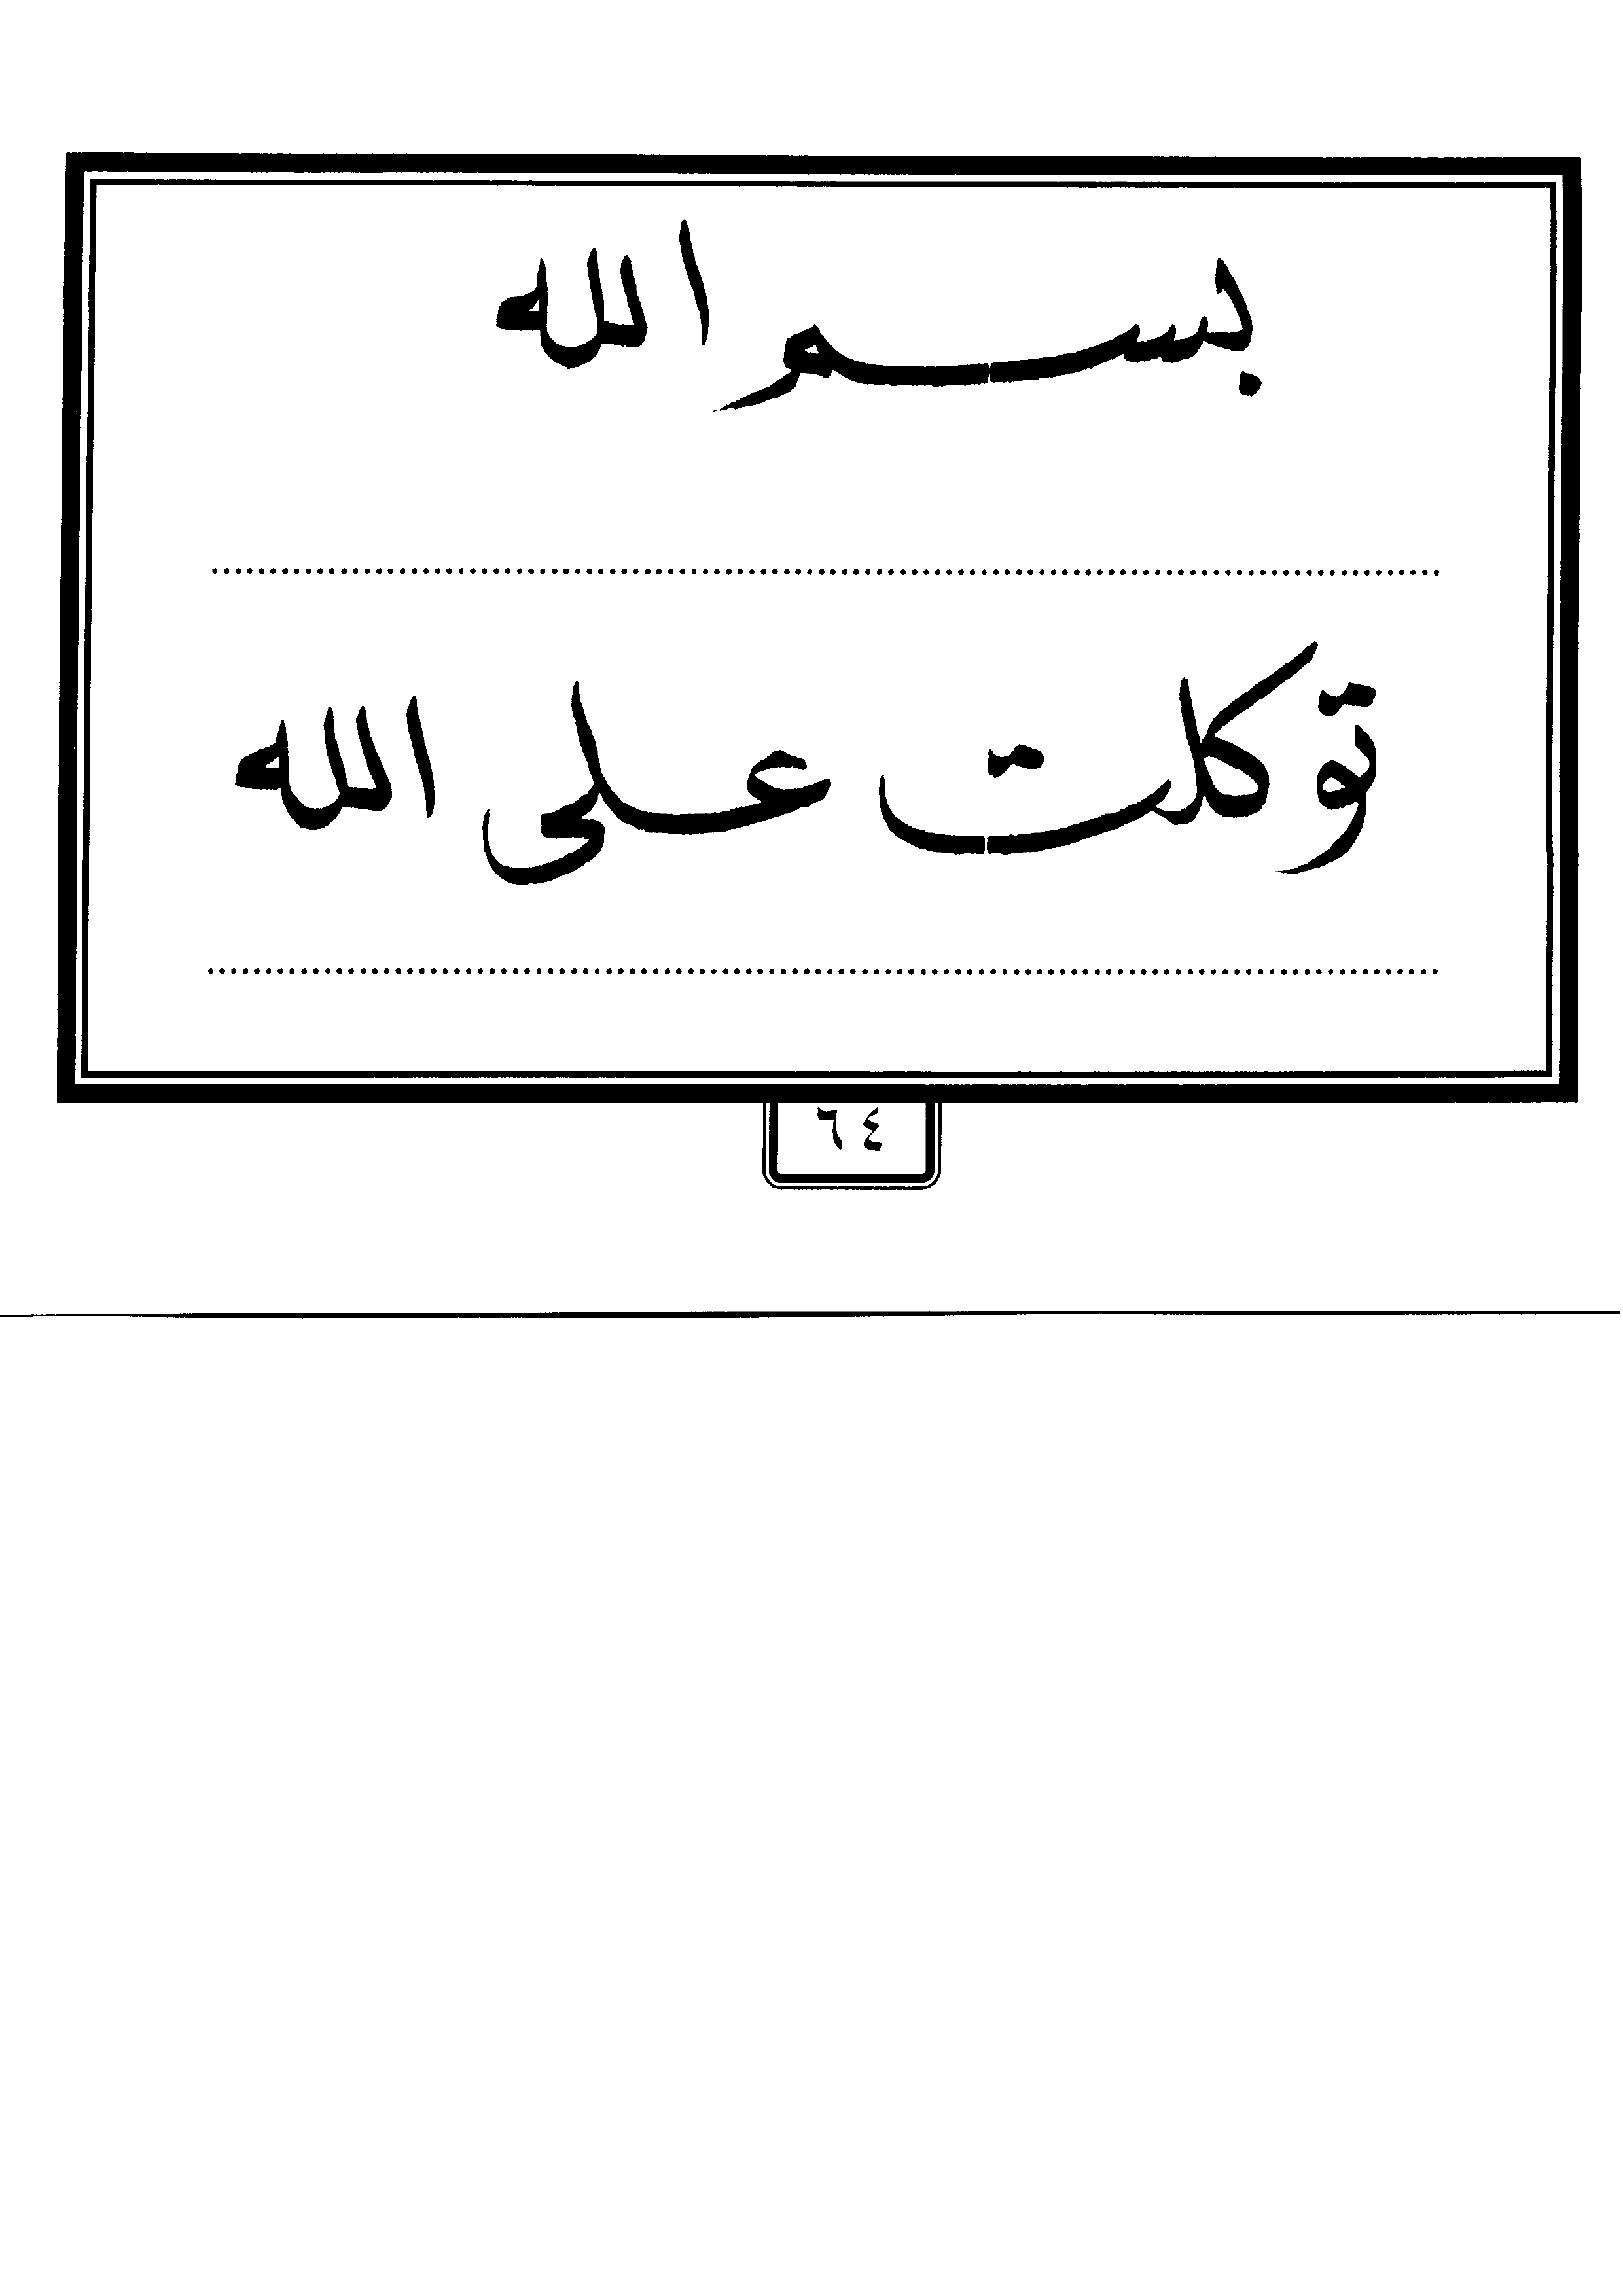 بسم الله
توكلت على الله
٦٤